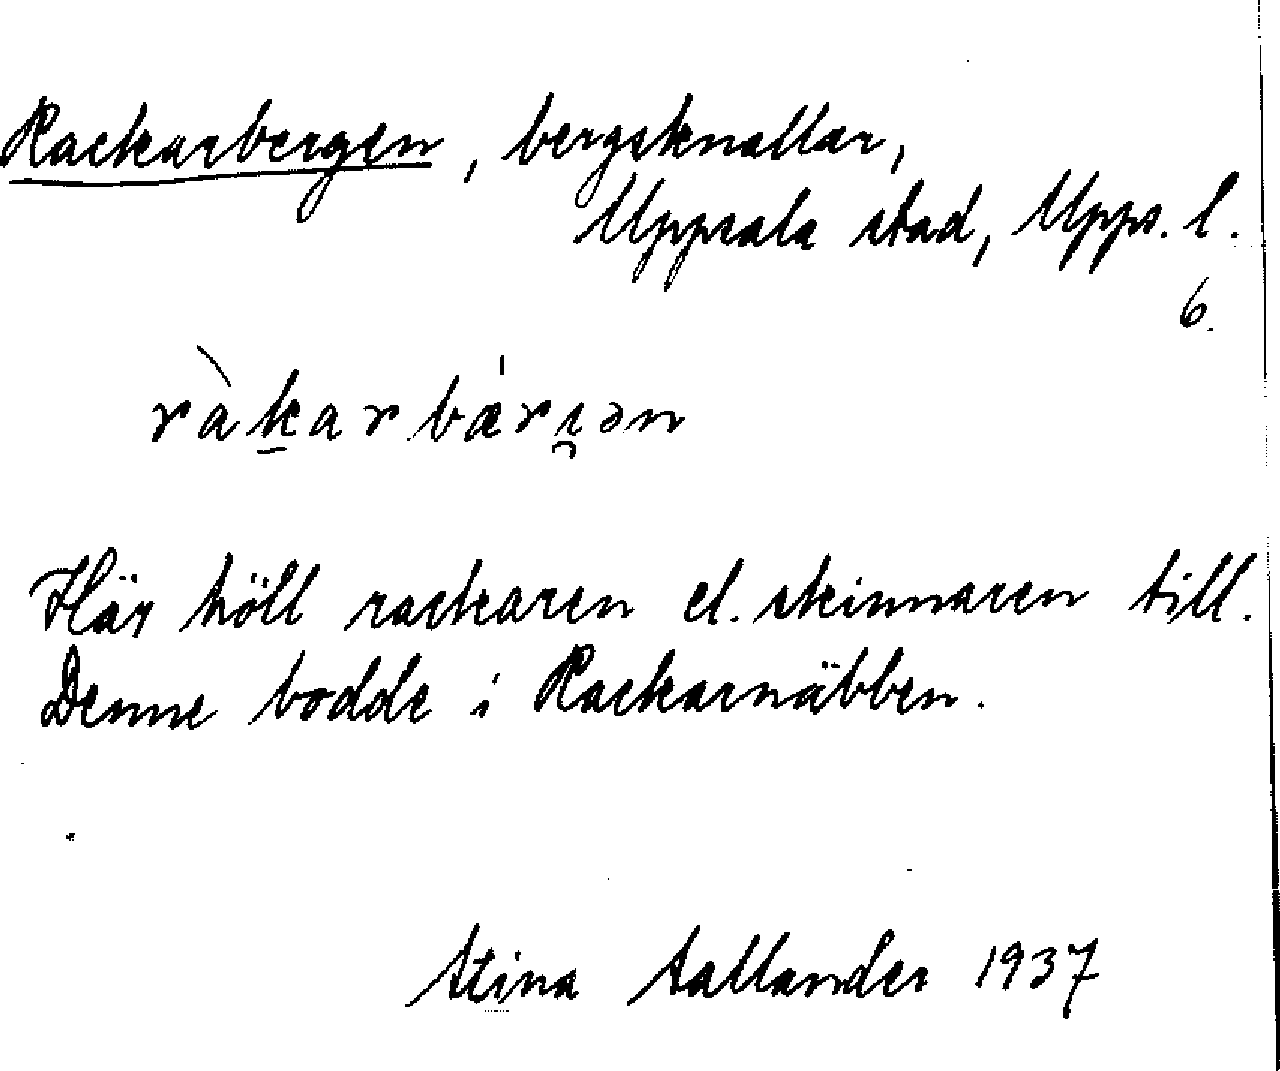 Rackarbergen, bergsknallar,
Uppsala stad, Upps. l.
6.
ràkarbǽri̯ən
Här höll rackaren el. skinnaren till.
Denne bodde i Rackarnäbben.
Stina Sallander 1937